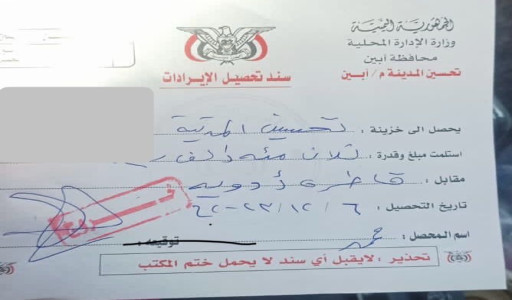 الجمهورية اليمنية
وزارة الإدارة المحلية
محافظة أبين
تحسين المدينة م/أبين
سند تحصيل الإيرادات
يحصل الى خزينة : تحسين المدينة
استلمت مبلغ وقدرة : ثلاث مئه الف
مقابل : قاطره أدويه
تاريخ التحصيل : ٦ / ١٢ /
اسم المحصل :
توقيعه :
تحذير : لايقبل أي سند لا يحمل ختم المكتب